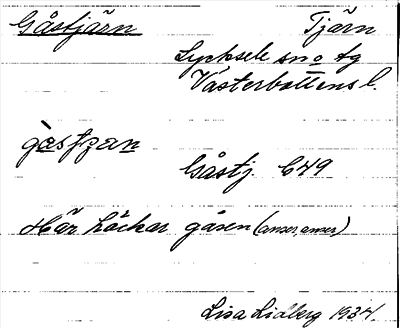 Gåstjärn Tjärn
Lycksele sn o tg
Västerbottens l.
gàstʒan
Gåstj. C49
Här häckar gåsen (anser anser)
Lisa Lidberg 1934.